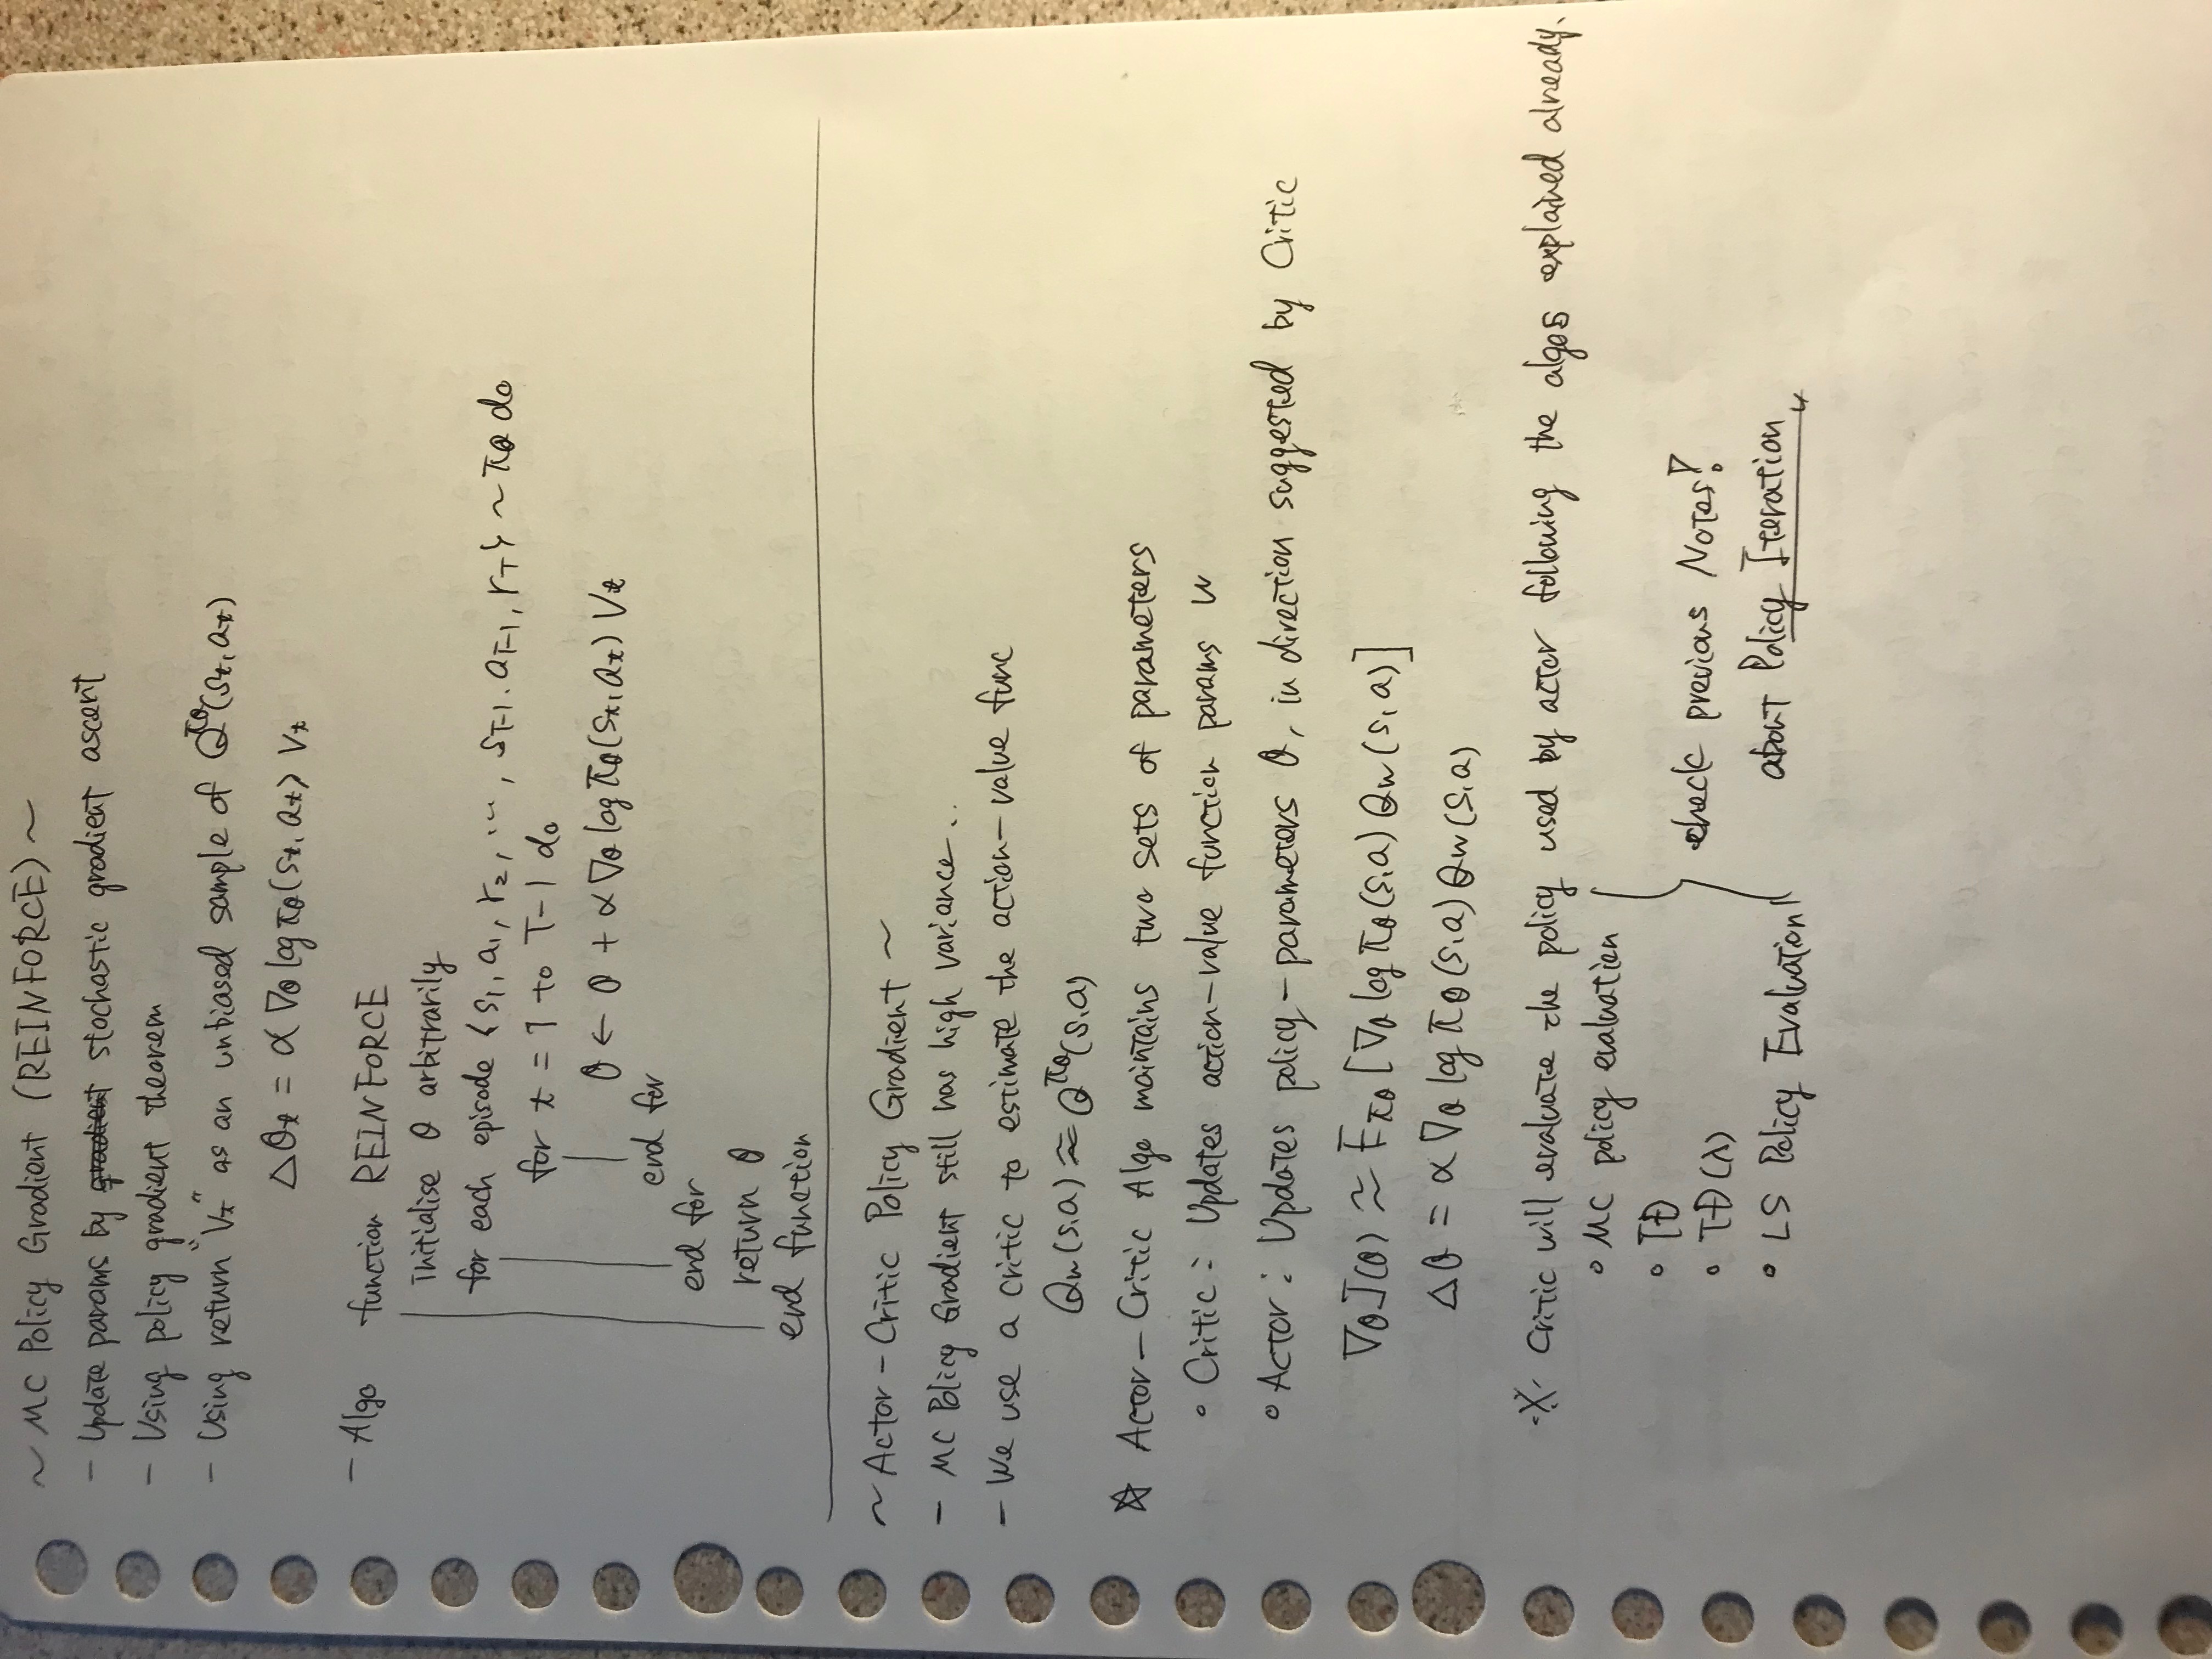 ~ MC Policy Gradient (REINFORCE) ~
- Update params by gradient stochastic gradient ascent
- Using policy gradient theorem
- Using return "Vt" as an unbiased sample of Q^πθ(st, at)
Δθt = α ∇θ log πθ(st, at) Vt
- Algo function REINFORCE
Initialise θ arbitrarily
for each episode {s1, a1, r2, ..., sT-1, aT-1, rT} ~ πθ do
for t = 1 to T-1 do
θ ← θ + α ∇θ log πθ(st, at) Vt
end for
end for
return θ
end function
~ Actor-Critic Policy Gradient ~
- MC Policy Gradient still has high variance..
- We use a critic to estimate the action-value func
Qw(s,a) ≈ Q^πθ(s,a)
☆ Actor-Critic Algo maintains two sets of parameters
◦ Critic : Updates action-value function params w
◦ Actor : Updates policy-parameters θ, in direction suggested by Critic
∇θJ(θ) ≈ Eπθ[∇θ log πθ(s,a) Qw(s,a)]
Δθ = α ∇θ log πθ(s,a) Qw(s,a)
※ Critic will evaluate the policy used by actor following the algos explained already.
◦ MC policy evaluation
◦ TD
◦ TD(λ)
◦ LS Policy Evaluation
check previous Notes!
about Policy Iteration